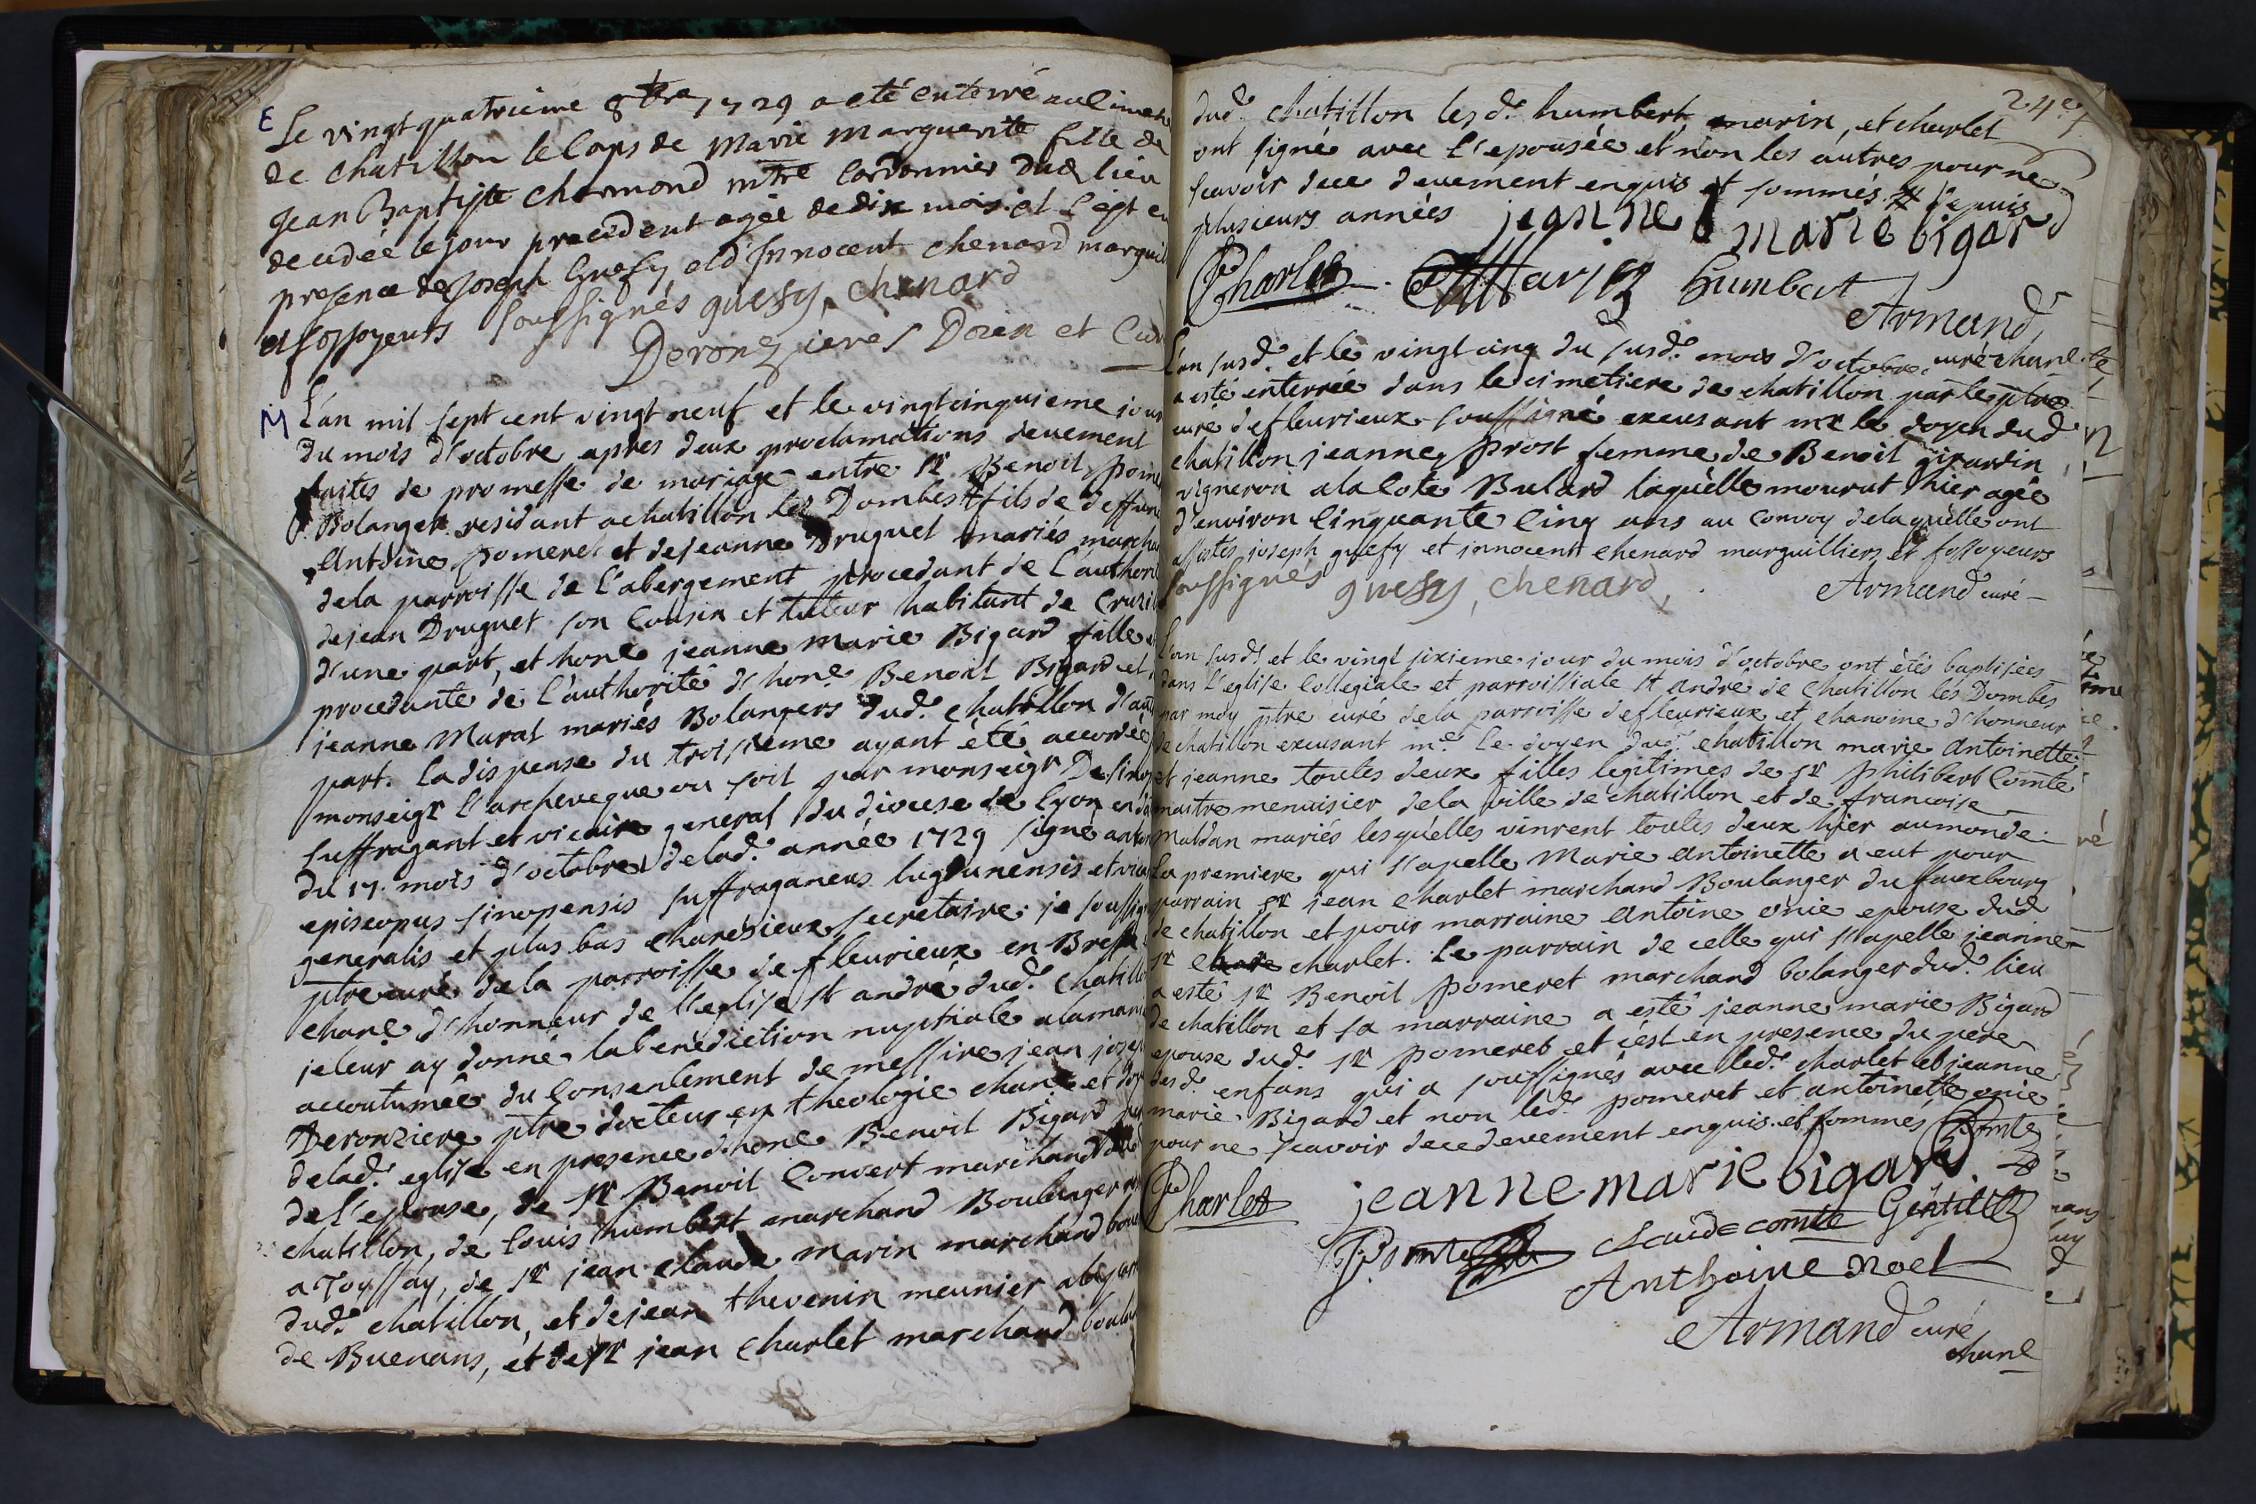 E
Le vingt quatrieme 8bre 1729 a eté enterré au cimet
de Chatillon le Corps de Marie Marguerite fille de
Jean Baptiste Charmond mtre Cordonnier dud lieu
decedée le jour precedent agée de dix mois et l'est en
presence de Joseph Guesy et d'Innocent chenard marguil
et fossoyeurs soussignés guesy, chenard
Deronzieres Doien et Cur
M
L'an mil sept cent vingt neuf et le vingt cinquieme jour
du mois d'octobre apres deux proclamations deuement
faites de promesse de mariage entre sr Benoit pome
Bolanger residant a chatillon les Dombes fils de deffunt
Antoine pomeret et de jeanne Druguet mariés marcha
de la parroisse de l'abergement procedant de l'authori
de jean Druguet son Cousin et tuteur habitant de Cruzi
d'une part, et hone jeanne marie Bigard fille
procedante de l'authorité d'hone Benoit Bigard et
jeanne Murat mariés Bolangers dud. chatillon d'au
part. la dispense du troisieme ayant été accordée
monseigr l'archeveque ou soit par monseigr De sino
suffragant et vicaire general du diocese de Lyon en d
du 17. mois d'octobre de lad. année 1729 signé anton
episcopus sinopensis suffraganeus lugdunensis et vica
generalis et plus bas charezieux secretaire; je soussig
ptre curé de la parroisse de fleurieux en Bresse
chane d'honneur de l'eglise st andré dud. Chatillo
je leur ay donné la benediction nuptiale a la mani
accoutumée du Consentement de messire jean jose
Deronziere ptre docteur en theologie chane et doy
de lad. eglise en presence d'hone Benoit Bigard
de l'epouse, de sr Benoit Convert marchand
chatillon, de Louis humbert marchand Boulanger
a Toyssay, de sr jean claude marin marchand bou
dud. chatillon, et de jean thevenin meunier a la par
de Buenans, et de sr jean charlet marchand boula
247
dud. chatillon lesd. humbert marin, et charlet
ont signé avec l'epousée et non les autres pour ne
scavoir dece deuement enquis et sommés # depuis
plusieurs années jeanne marie bigard
Charlet Marin humbert
Armand
curé chane
L'an susd. et le vingt cinq du susd. mois d'octobre
a esté enterrée dans le cimetiere de chatillon par le ptre
curé de fleurieux soussigné excusant mr le doyen dud
chatillon jeanne prost femme de Benoit girardin
vigneron a la Cote Bulard laquelle mourut hier agée
d'environ Cinquante Cinq ans au Convoy de laquelle ont
assistes joseph guesy et jnnocent chenard marguilliers et fossoyeurs
soussignés guesy, chenard, Armand curé
L'an susd. et le vingt sixieme jour du mois d'octobre ont étés baptisées
dans l'eglise Collegiale et parroissiale st andré de Chatillon les Dombes
par moy ptre curé de la parroisse de fleurieux et chanoine d'honneur
de chatillon excusant mr. Le doyen dud. chatillon marie Antoinette
et jeanne toutes deux filles legitimes de sr philibert Comte
maitre menuisier de la ville de chatillon et de francoise
Maldan mariés lesquelles vinrent toutes deux hier au monde
La premiere qui s'apelle Marie Antoinette a eut pour
parrain sr jean Charlet marchand Boulanger du fauxbourg
de chatillon et pour marraine Antoine onie epouse dud
sr charlet. Le parrain de celle qui s'apelle jeanne
a esté sr Benoit pomeret marchand bolanger dud. lieu
de chatillon et sa marraine a esté jeanne marie Bigard
epouse dud. sr pomeret et c'est en presence du pere
desd. enfans qui a soussignés avec led. charlet et jeanne
marie Bigard et non led. pomeret et antoinette onie
pour ne scavoir dece deuement enquis et sommés Comte
Charlet jeanne marie bigard
Comte Claude comte Gentil
Anthoine Noel
Armand curé
chane